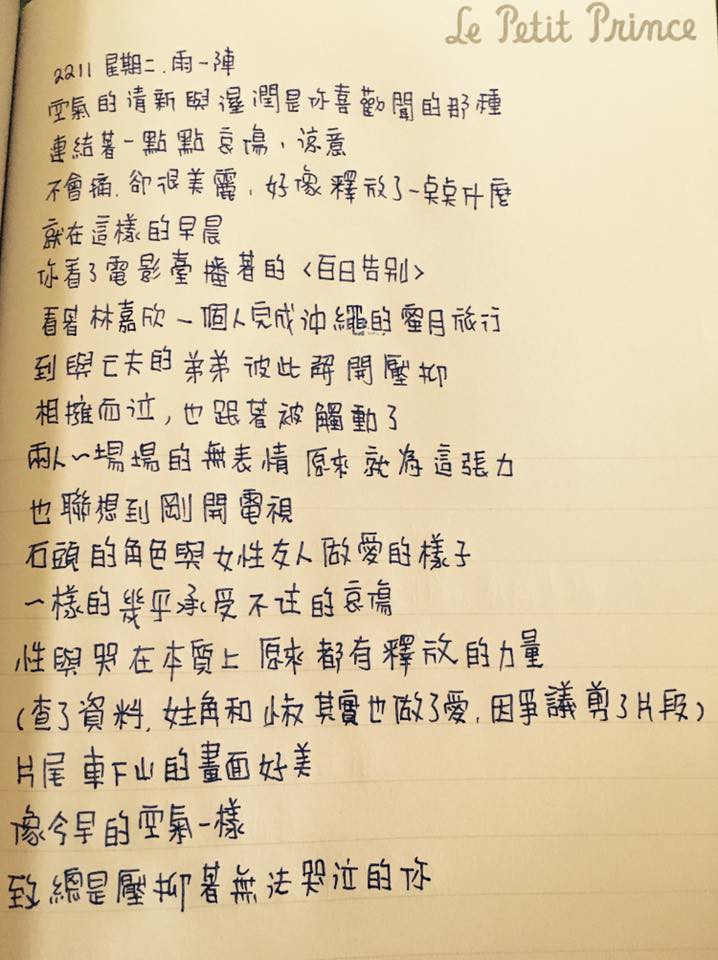 Le Petit Prince
2211 星期二.雨一陣
空氣的清新與溼潤是你喜歡聞的那種
連結著一點點哀傷、涼意
不會痛.卻很美麗,好像釋放了一點點什麼
就在這樣的早晨
你看了電影臺播著的〈百日告別〉
看著林嘉欣一個人完成沖繩的蜜月旅行
到與亡夫的弟弟彼此解開壓抑
相擁而泣,也跟著被觸動了
兩人一場場的無表情原來就為這張力
也聯想到剛開電視
石頭的角色與女性友人做愛的樣子
一樣的幾乎承受不住的哀傷
性與哭在本質上原來都有釋放的力量
(查了資料,女主角和小叔其實也做了愛,因爭議剪了片段)
片尾車下山的畫面好美
像今早的空氣一樣
致總是壓抑著無法哭泣的你